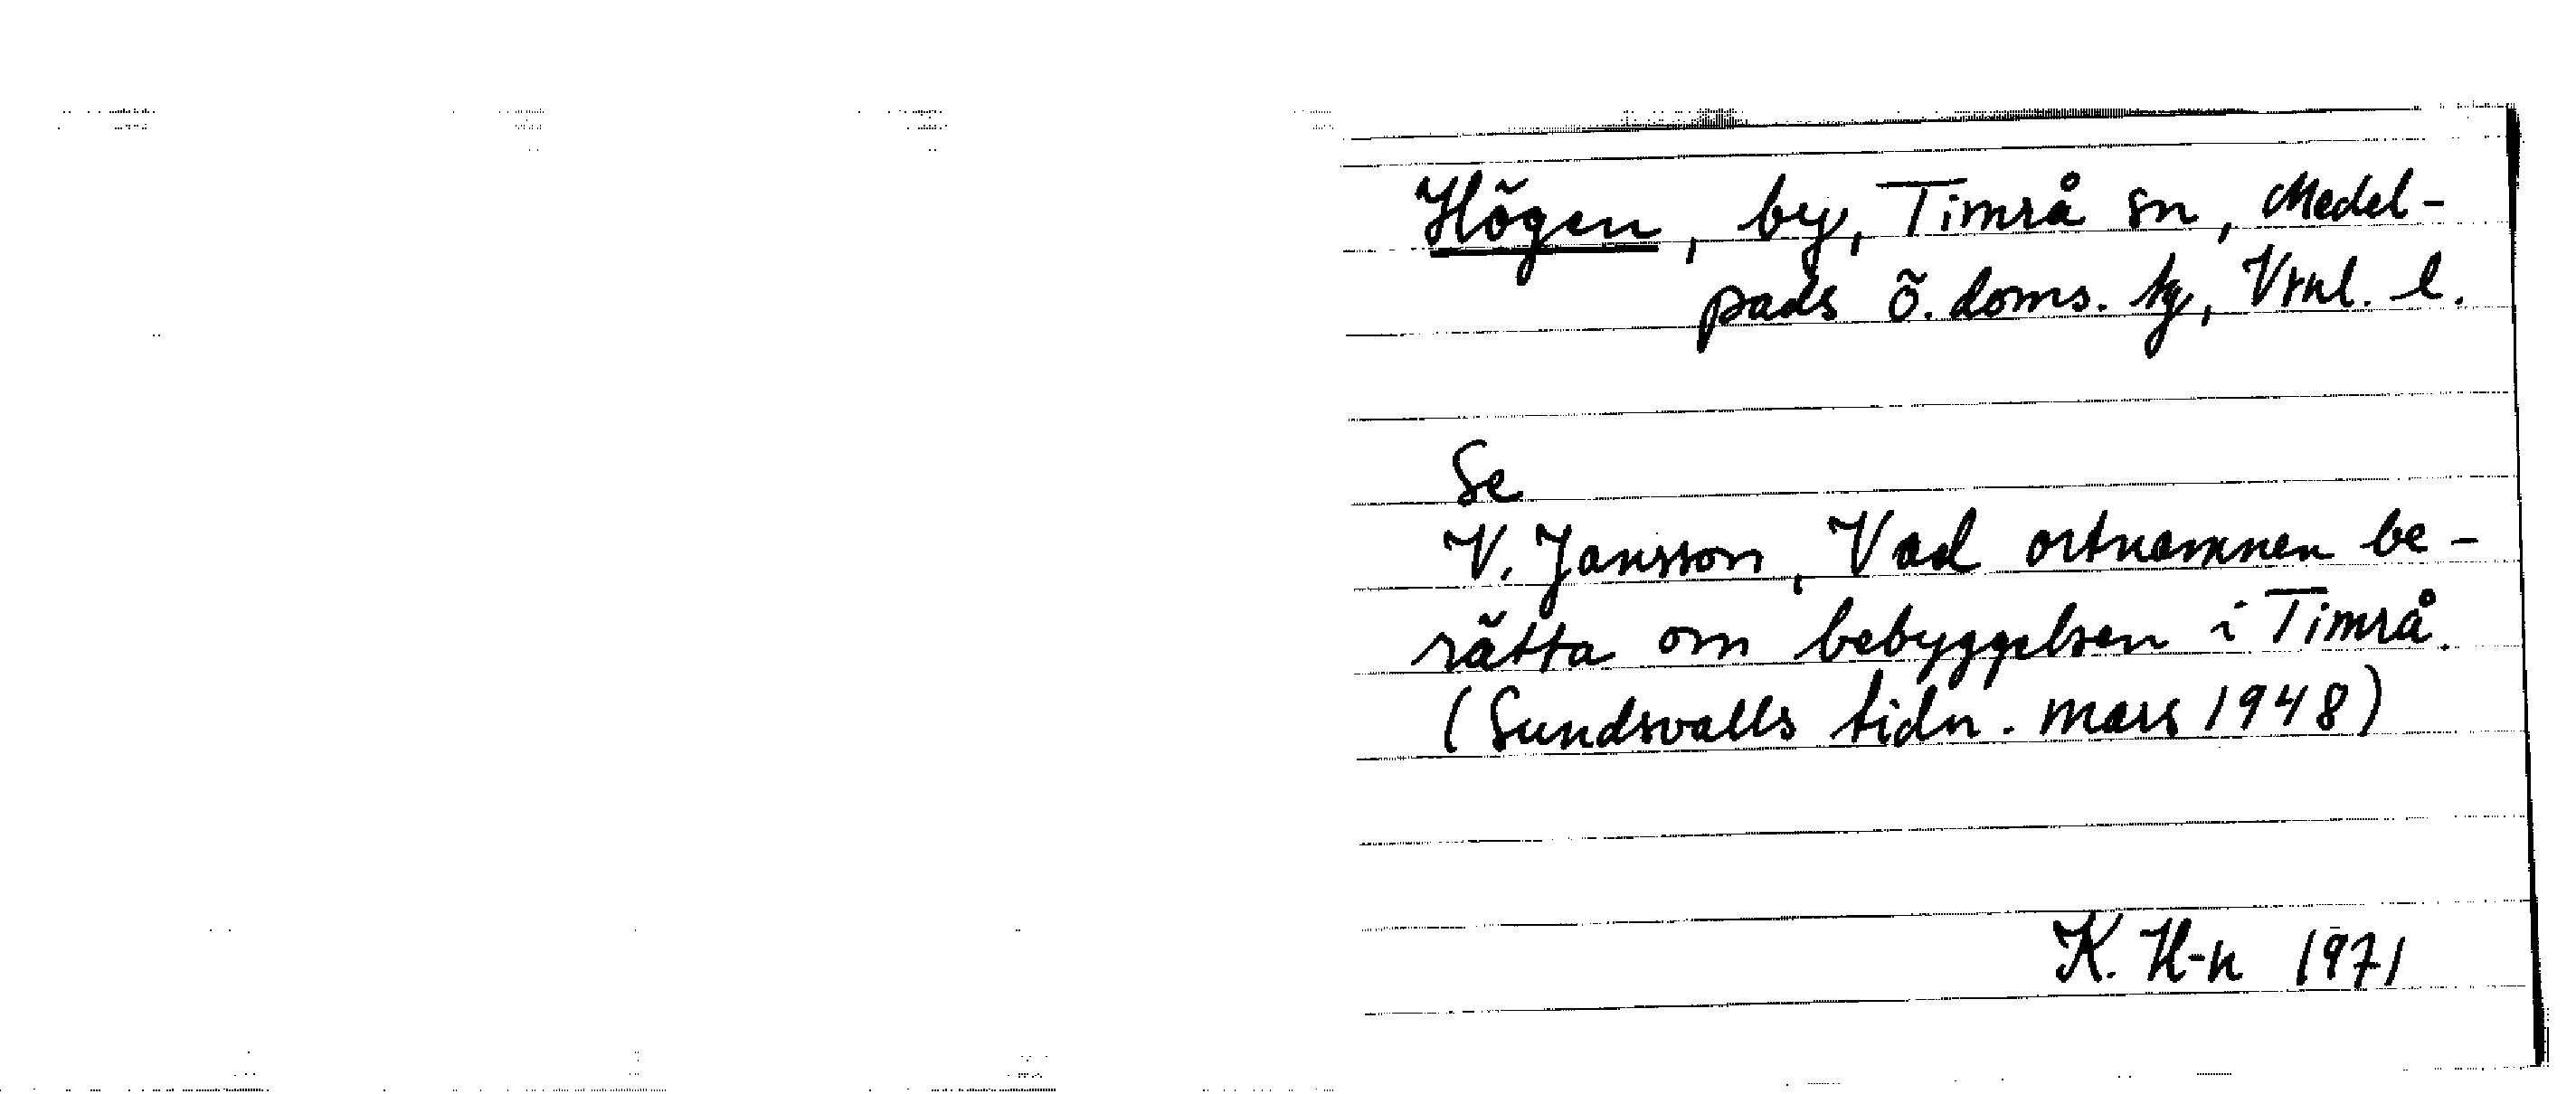 Högen, by, Timrå sn, Medel-
pads ö. doms. tg, Vrnl. l.
Se
V. Jansson, Vad ortnamnen be-
rätta om bebyggelsen i Timrå.
(Sundsvalls tidn. mars 1948)
K. H-n 1971